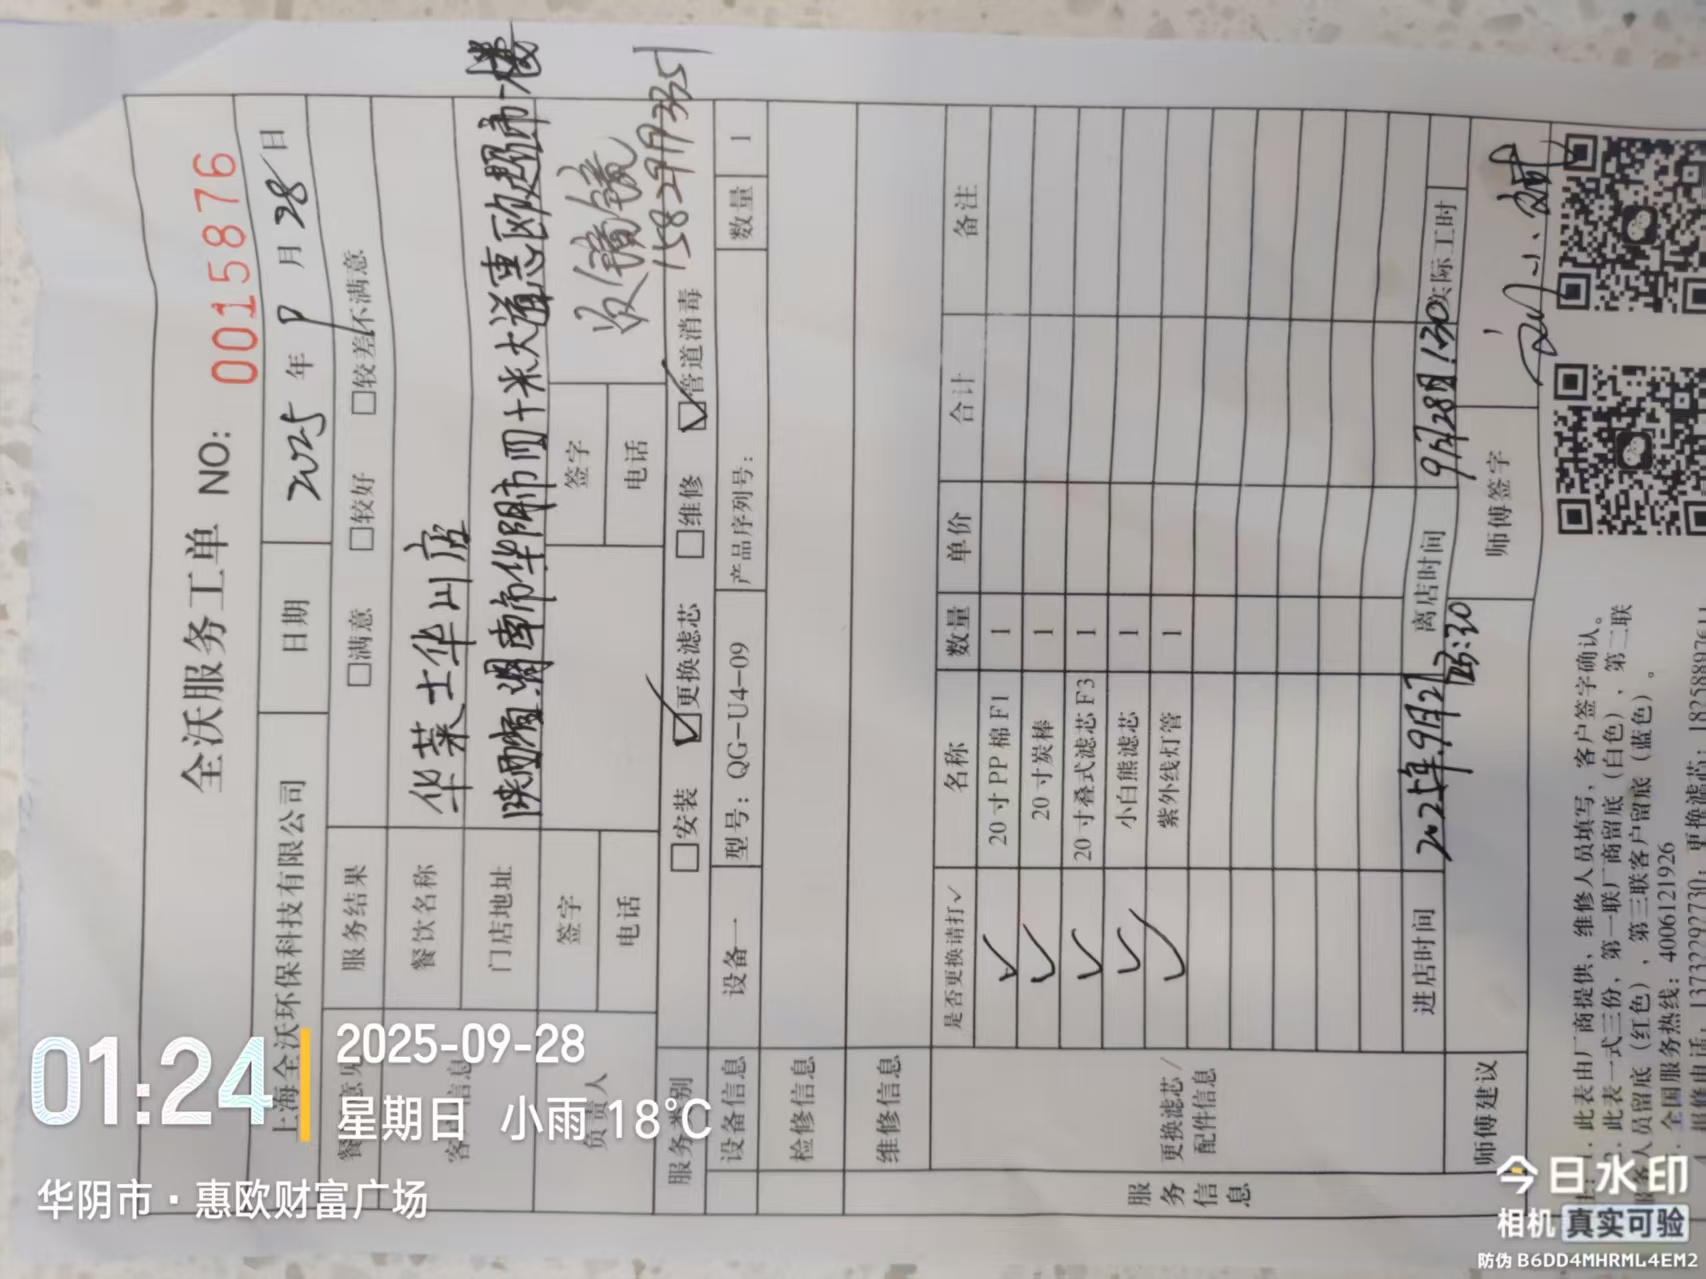 全沃服务工单 NO: 0015876
上海全沃环保科技有限公司 日期 2025年9月28日
服务结果 □满意 □较好 □较差 不满意
餐饮名称 华莱士华山店
门店地址 陕西省渭南市华阴市四十米大道惠欧超市一楼
签字 签字
电话 电话
服务类别 □安装 ☑更换滤芯 □维修 ☑管道消毒
设备信息 设备一 型号：QG-U4-09 产品序列号： 数量 1
检修信息
维修信息
服务信息
更换滤芯/配件信息
是否更换请打✓ 名称 数量 单价 合计 备注
✓ 20寸PP棉F1 1
✓ 20寸炭棒 1
✓ 20寸叠式滤芯F3 1
✓ 小白熊滤芯 1
✓ 紫外线灯管 1
进店时间 2025年9月27 23:30 离店时间 9月28日1:30 实际工时
师傅建议 师傅签字
1. 此表由厂商提供，维修人员填写，客户签字确认。
2. 此表一式三份，第一联厂商留底（白色），第二联
服务人员留底（红色），第三联客户留底（蓝色）。
全国服务热线：4006121926
维修电话 13732292730；更换滤芯：
01:24
2025-09-28
星期日 小雨 18℃
华阴市·惠欧财富广场
今日水印
相机 真实可验
防伪 B6DD4MHRML4EM2